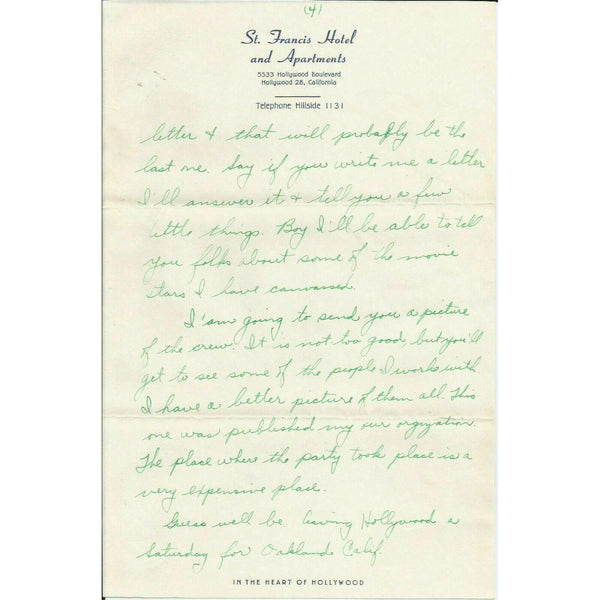 (4)
St. Francis Hotel
and Apartments
5533 Hollywood Boulevard
Hollywood 28, California
Telephone Hillside 1131
letter & that will probably be the
last one. Say if you write me a letter
I'll answer it & tell you a few
little things. Boy I'll be able to tell
you folks about some of the movie
stars I have canvassed.
I'am going to send you a picture
of the crew. It is not too good, but you'll
get to see some of the people I work with.
I have a better picture of them all. This
one was published my our orgization.
The place where the party took place is a
very expensive place.
Guess well be leaving Hollywood a
Saturday for Oakland Calif.
IN THE HEART OF HOLLYWOOD